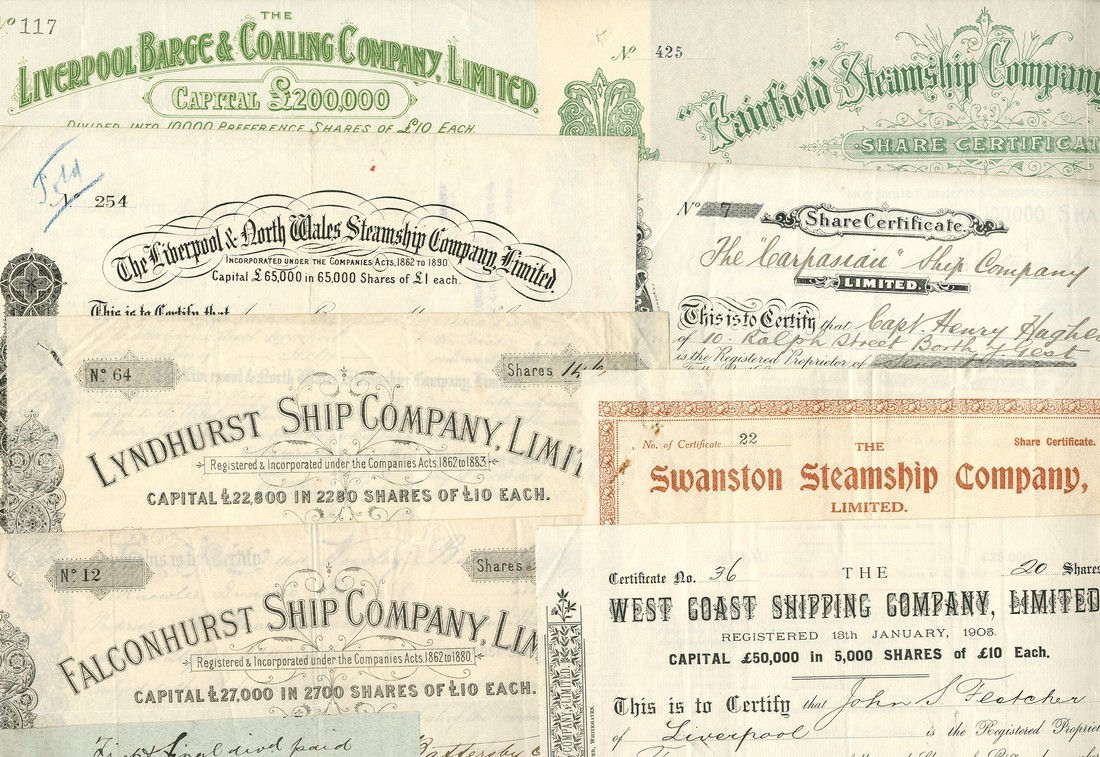 Nº 117
THE
LIVERPOOL BARGE & COALING COMPANY, LIMITED.
CAPITAL £200,000
DIVIDED INTO 10000 PREFERENCE SHARES OF £10 EACH.
Nº 425
"Fairfield" Steamship Company
SHARE CERTIFICAT
Nº 254
The Liverpool & North Wales Steamship Company, Limited.
INCORPORATED UNDER THE COMPANIES ACTS, 1862 TO 1890.
Capital £65,000 in 65,000 Shares of £1 each.
This is to Certify that
Nº 7
Share Certificate.
The "Carpasian" Ship Company
LIMITED.
This is to Certify that Capt. Henry Hughes
of 10, Ralph Street Borth y Gest
is the Registered Proprietor of
Nº 64
Shares
LYNDHURST SHIP COMPANY, LIMIT
Registered & Incorporated under the Companies Acts, 1862 to 1883.
CAPITAL £22,800 IN 2280 SHARES OF £10 EACH.
No. of Certificate 22
Share Certificate.
THE
Swanston Steamship Company,
LIMITED.
Nº 12
Shares
FALCONHURST SHIP COMPANY, LIM
Registered & Incorporated under the Companies Acts, 1862 to 1880.
CAPITAL £27,000 IN 2700 SHARES OF £10 EACH.
First & final divd paid
Battersby
Certificate No. 36
THE
20 Shares
WEST COAST SHIPPING COMPANY, LIMITED
REGISTERED 18th JANUARY, 1903.
CAPITAL £50,000 in 5,000 SHARES of £10 Each.
This is to Certify that John S. Fletcher
of Liverpool is the Registered Proprie
COMPANY, LIMITED